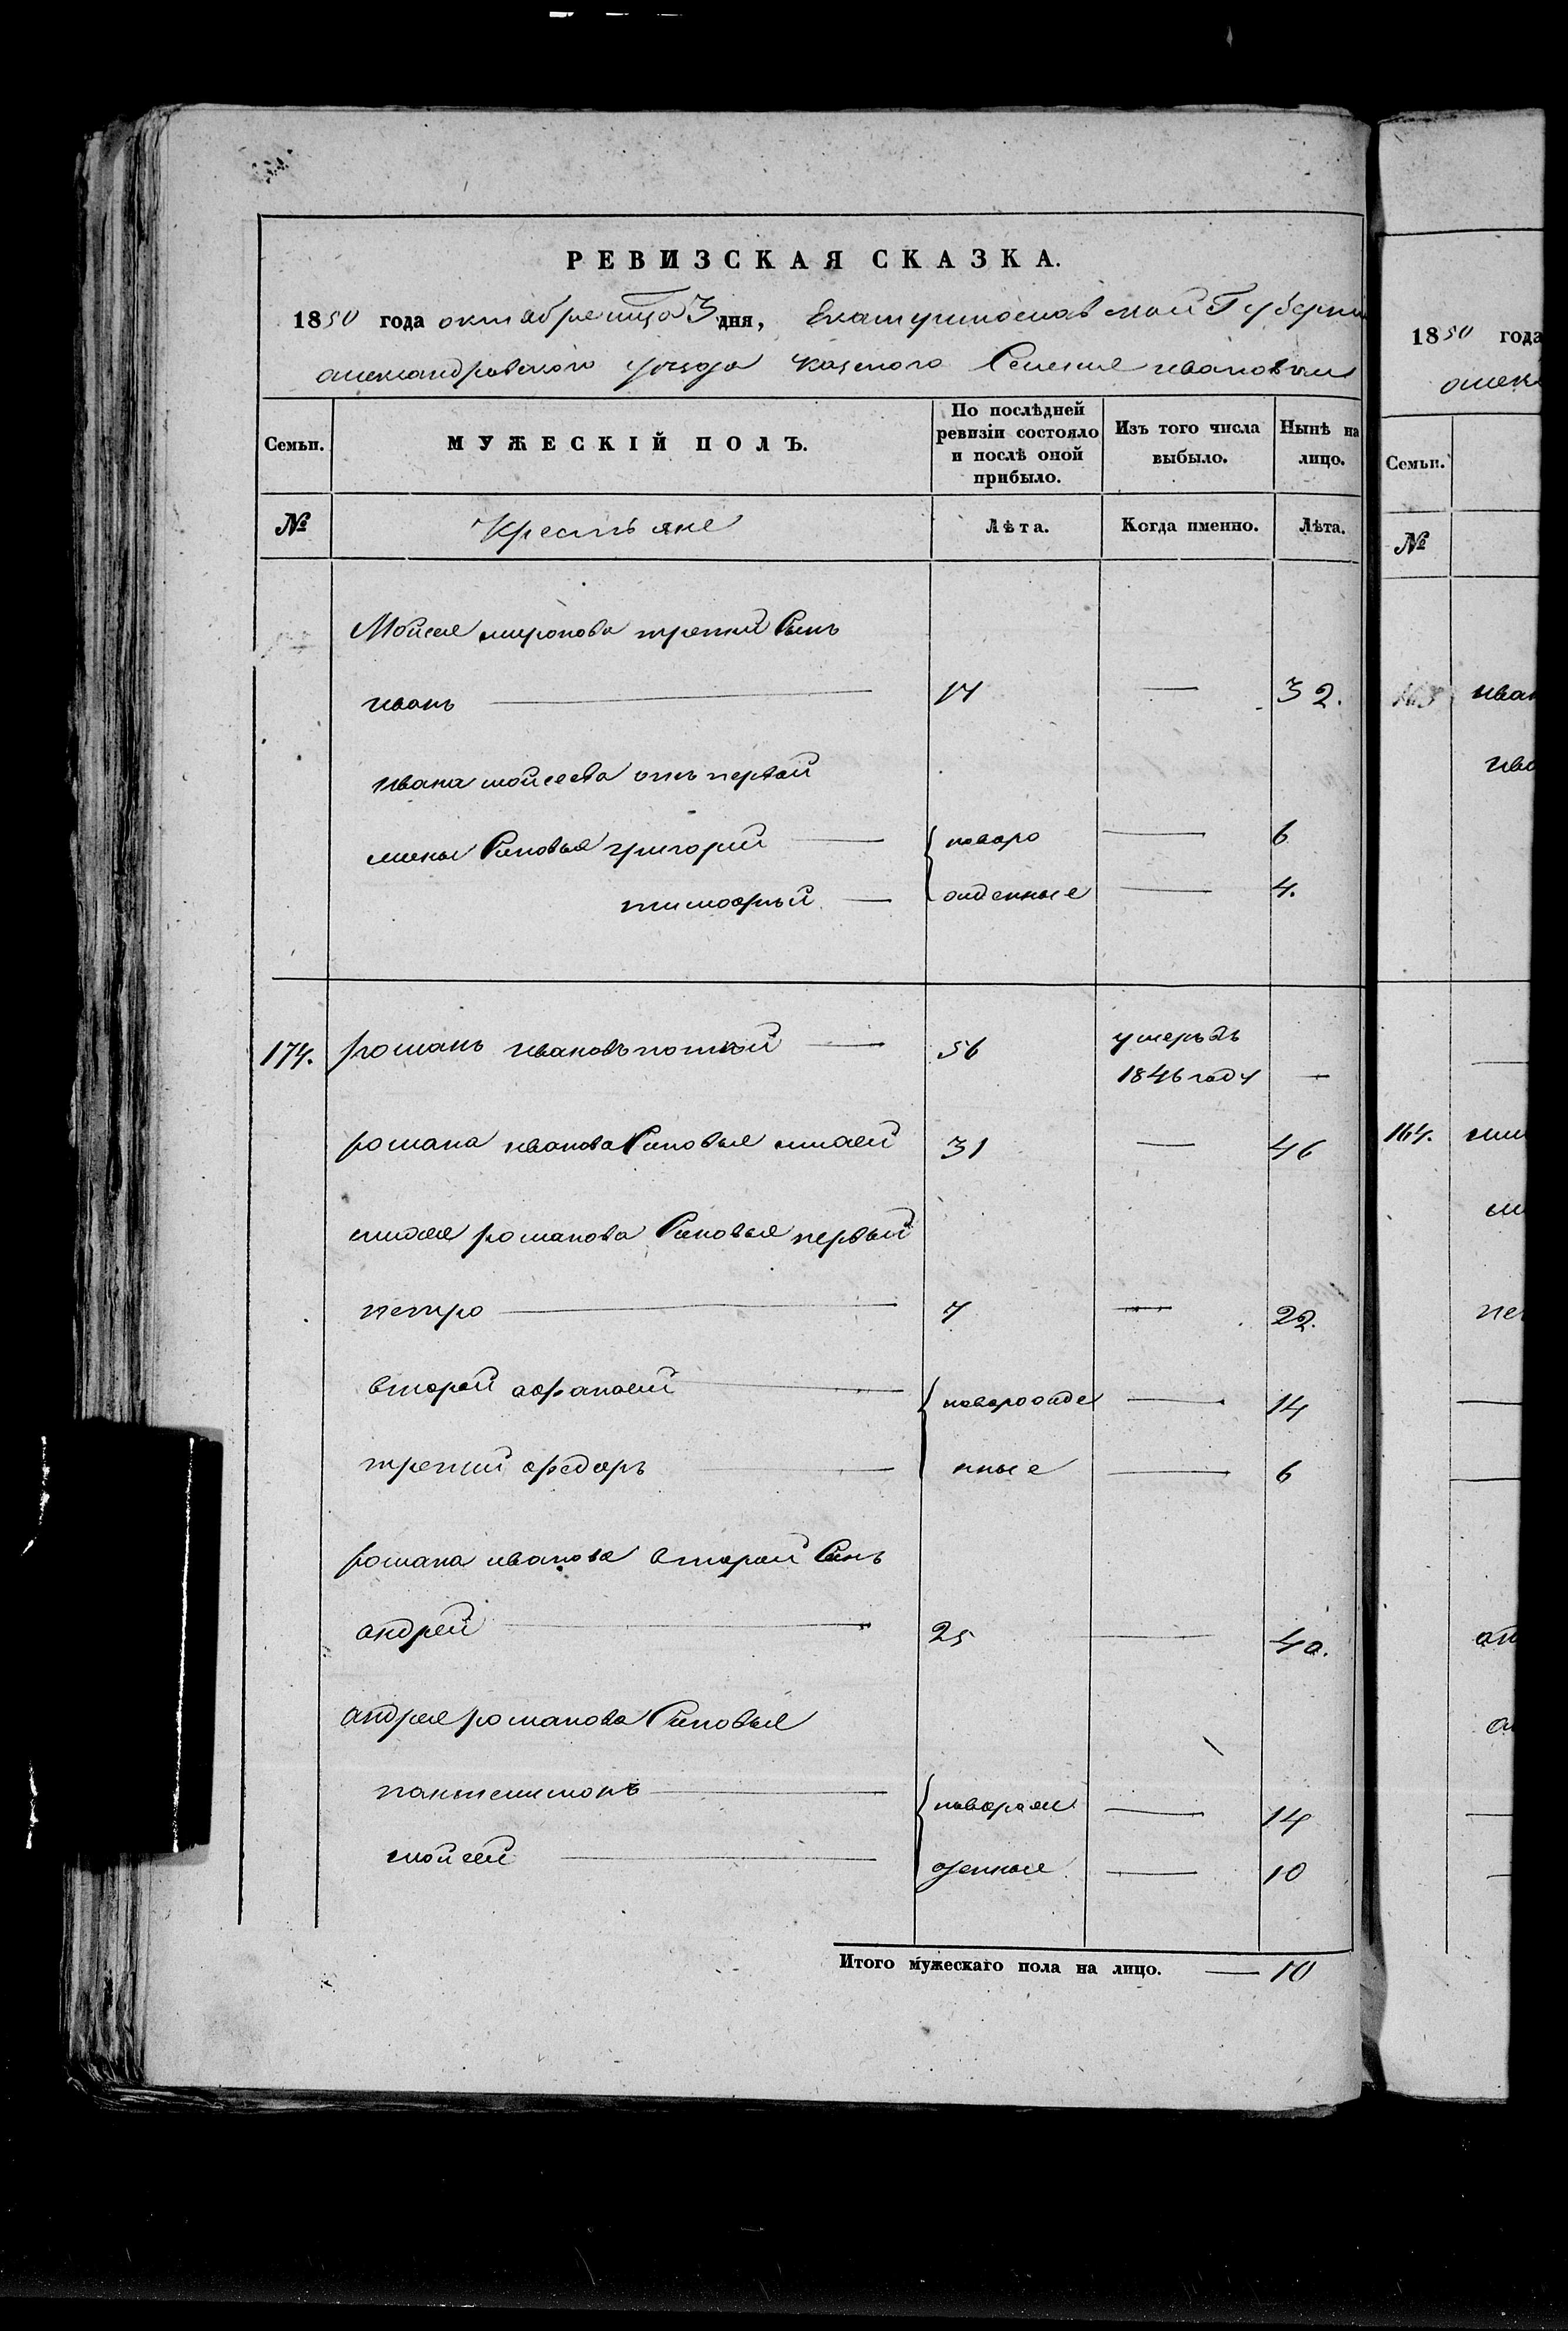 РЕВИЗСКАЯ СКАЗКА.
1850 года октабре мца 3 дня, Екатуринославской Губерни
александровского уезда казеного Селения ивановки
Семьи. МУЖЕСКІЙ ПОЛЪ. По послѣдней ревизіи состояло и послѣ оной прибыло. Изъ того числа выбыло. Нынѣ на лицо.
№ Крестьяне Лѣта. Когда именно. Лѣта.
Мойсея миронова третий Синъ
иванъ 17 32.
ивана мойсеева отъ первой
жены Синовья григорий новоро 6
тимофей ожденные 4.
174. романъ ивановъ 56 умеръ въ
1846 году
романа иванова Синовья 31 46
романова Синовья первый
петро 7 22.
второй афанасий новорожде 14
третий федоръ нные 6
романа иванова второй Синъ
андрей 25 40.
андрея романова Синовья
пантелимонъ новорож 14
мойсей денные 10
Итого мужескаго пола на лицо. 10
1850 года
алек
Семьи.
№
163 иван
ива
164.
пе
ан